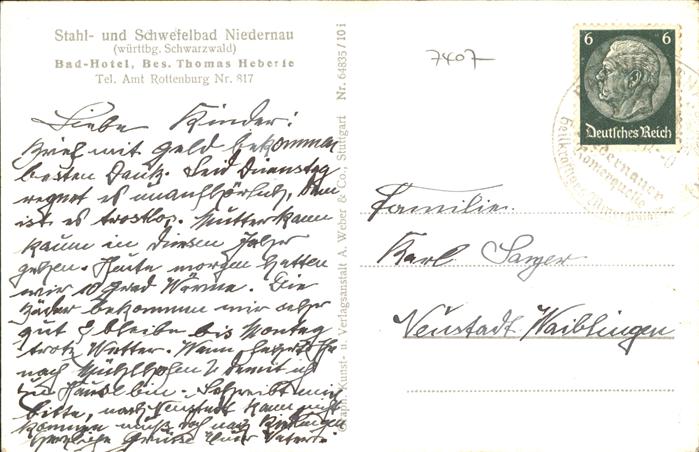 Stahl- und Schwefelbad Niedernau
(württbg. Schwarzwald)
Bad-Hotel, Bes. Thomas Heberle
Tel. Amt Rottenburg Nr. 817
Liebe Kinder!
Brief mit Geld bekommen
besten Dank. Seid Dienstag
regnet es unaufhörlich, dann
ist es trostlos. Mutter kann
kaum in diesem Jahr
gehen. Heute morgen hatten
wir 10 Grad Wärme. Die
Bäder bekommen mir sehr
gut & bleibe bis Montag
trotz Wetter. Wann
nach
zu Hause bin. Schreibt mir
bitte, nach Neustadt kann nicht
kommen muß doch nach
Herzliche Grüße Euer Vater
Graph. Kunst- u. Verlagsanstalt A. Weber & Co., Stuttgart Nr. 64835/10 i
7407
6 6
Deutsches Reich
Niedernauer
Römerquelle
Familie
Karl
Neustadt-Waiblingen